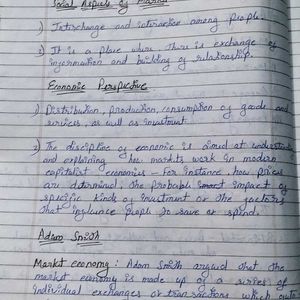 Social Aspects of Market
1) Interchange and interaction among people.
2) It is a place where there is exchange of
information and building of relationship.
Economic Perspective
1) Distribution, production, consumption of goods and
services, as well as investment.
2) The discipline of economic is aimed at understan
and explaining how markets work in modern
capitalist economies - For instance, how prices
are determined, the probable impact of
specific kinds of investment or the factors
that influence people to save or spend.
Adam Smith
Market economy : Adam Smith argued that the
market economy is made up of a series of
individual exchanges or transactions which